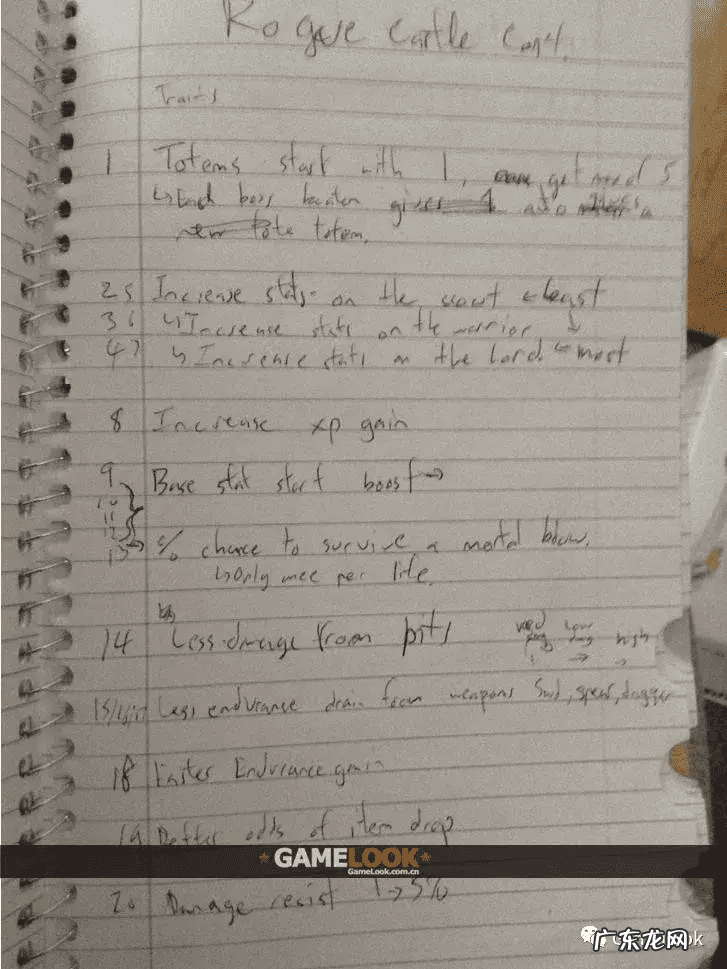 Rogue Castle Cont.
Traits
1 Totems start with 1, can get max of 5
↳ Each boss beaten gives a
totem.
25 Increase stats on the scout ← least
36 ↳ Increase stats on the warrior ↓
47 ↳ Increase stats on the lord. ← most
8 Increase xp gain
9 Base stat start boost →
10
11
12
13 → % chance to survive a mortal blow.
↳ Only once per life.
14 Less damage from pits
high
15/16/17 Less endurance drain from weapons Swd, spear, dagger
18 Faster Endurance gain
19 Better odds of item drop
GAMELOOK
GameLook.com.cn
20 Damage resist 1 → 5%
广东龙网